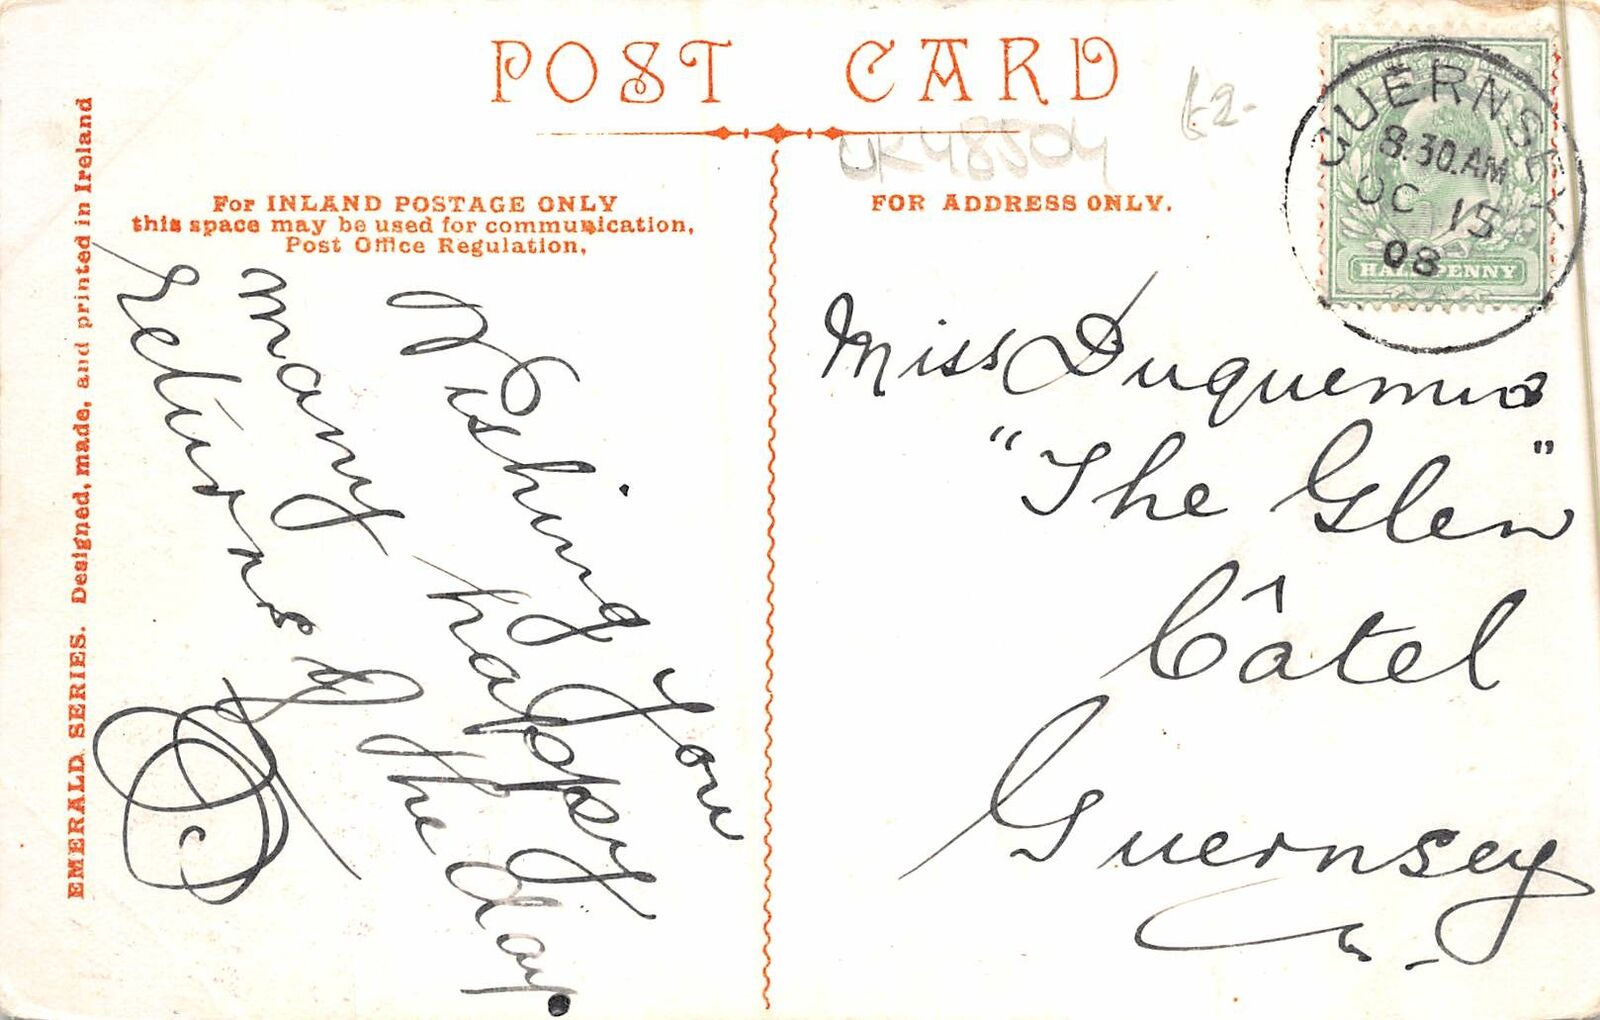 POST CARD
£2-
UK48504
GUERNSEY
8.30.AM
OC 15
08
HALFPENNY
For INLAND POSTAGE ONLY
this space may be used for communication,
Post Office Regulation,
FOR ADDRESS ONLY.
EMERALD SERIES. Designed, made, and printed in Ireland
Wishing you
many happy
returns of the day.
Miss Duquemin
"The Glen"
Câtel
Guernsey